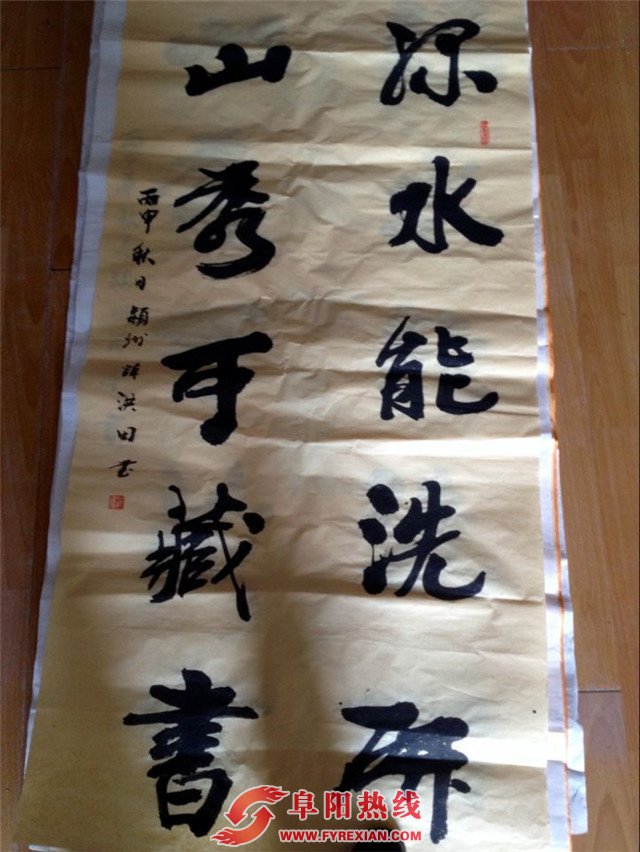 深水能洗研
山秀可藏書
丙申秋日颖州洪田书
阜阳热线
WWW.FYREXIAN.COM